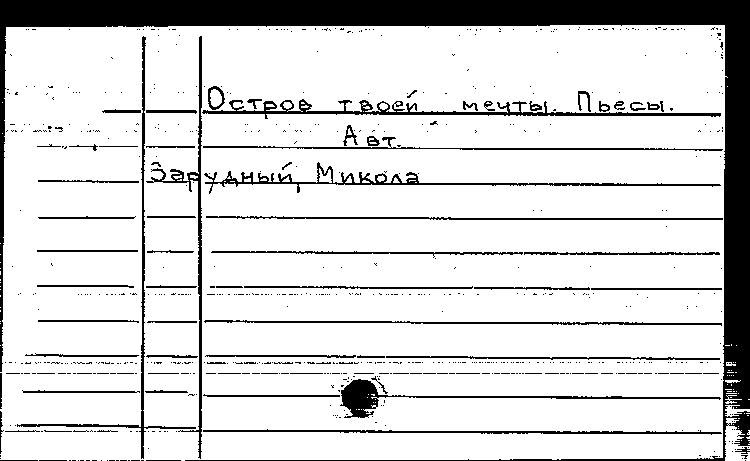 Остров твоей мечты. Пьесы.
Авт.
Зарудный, Микола